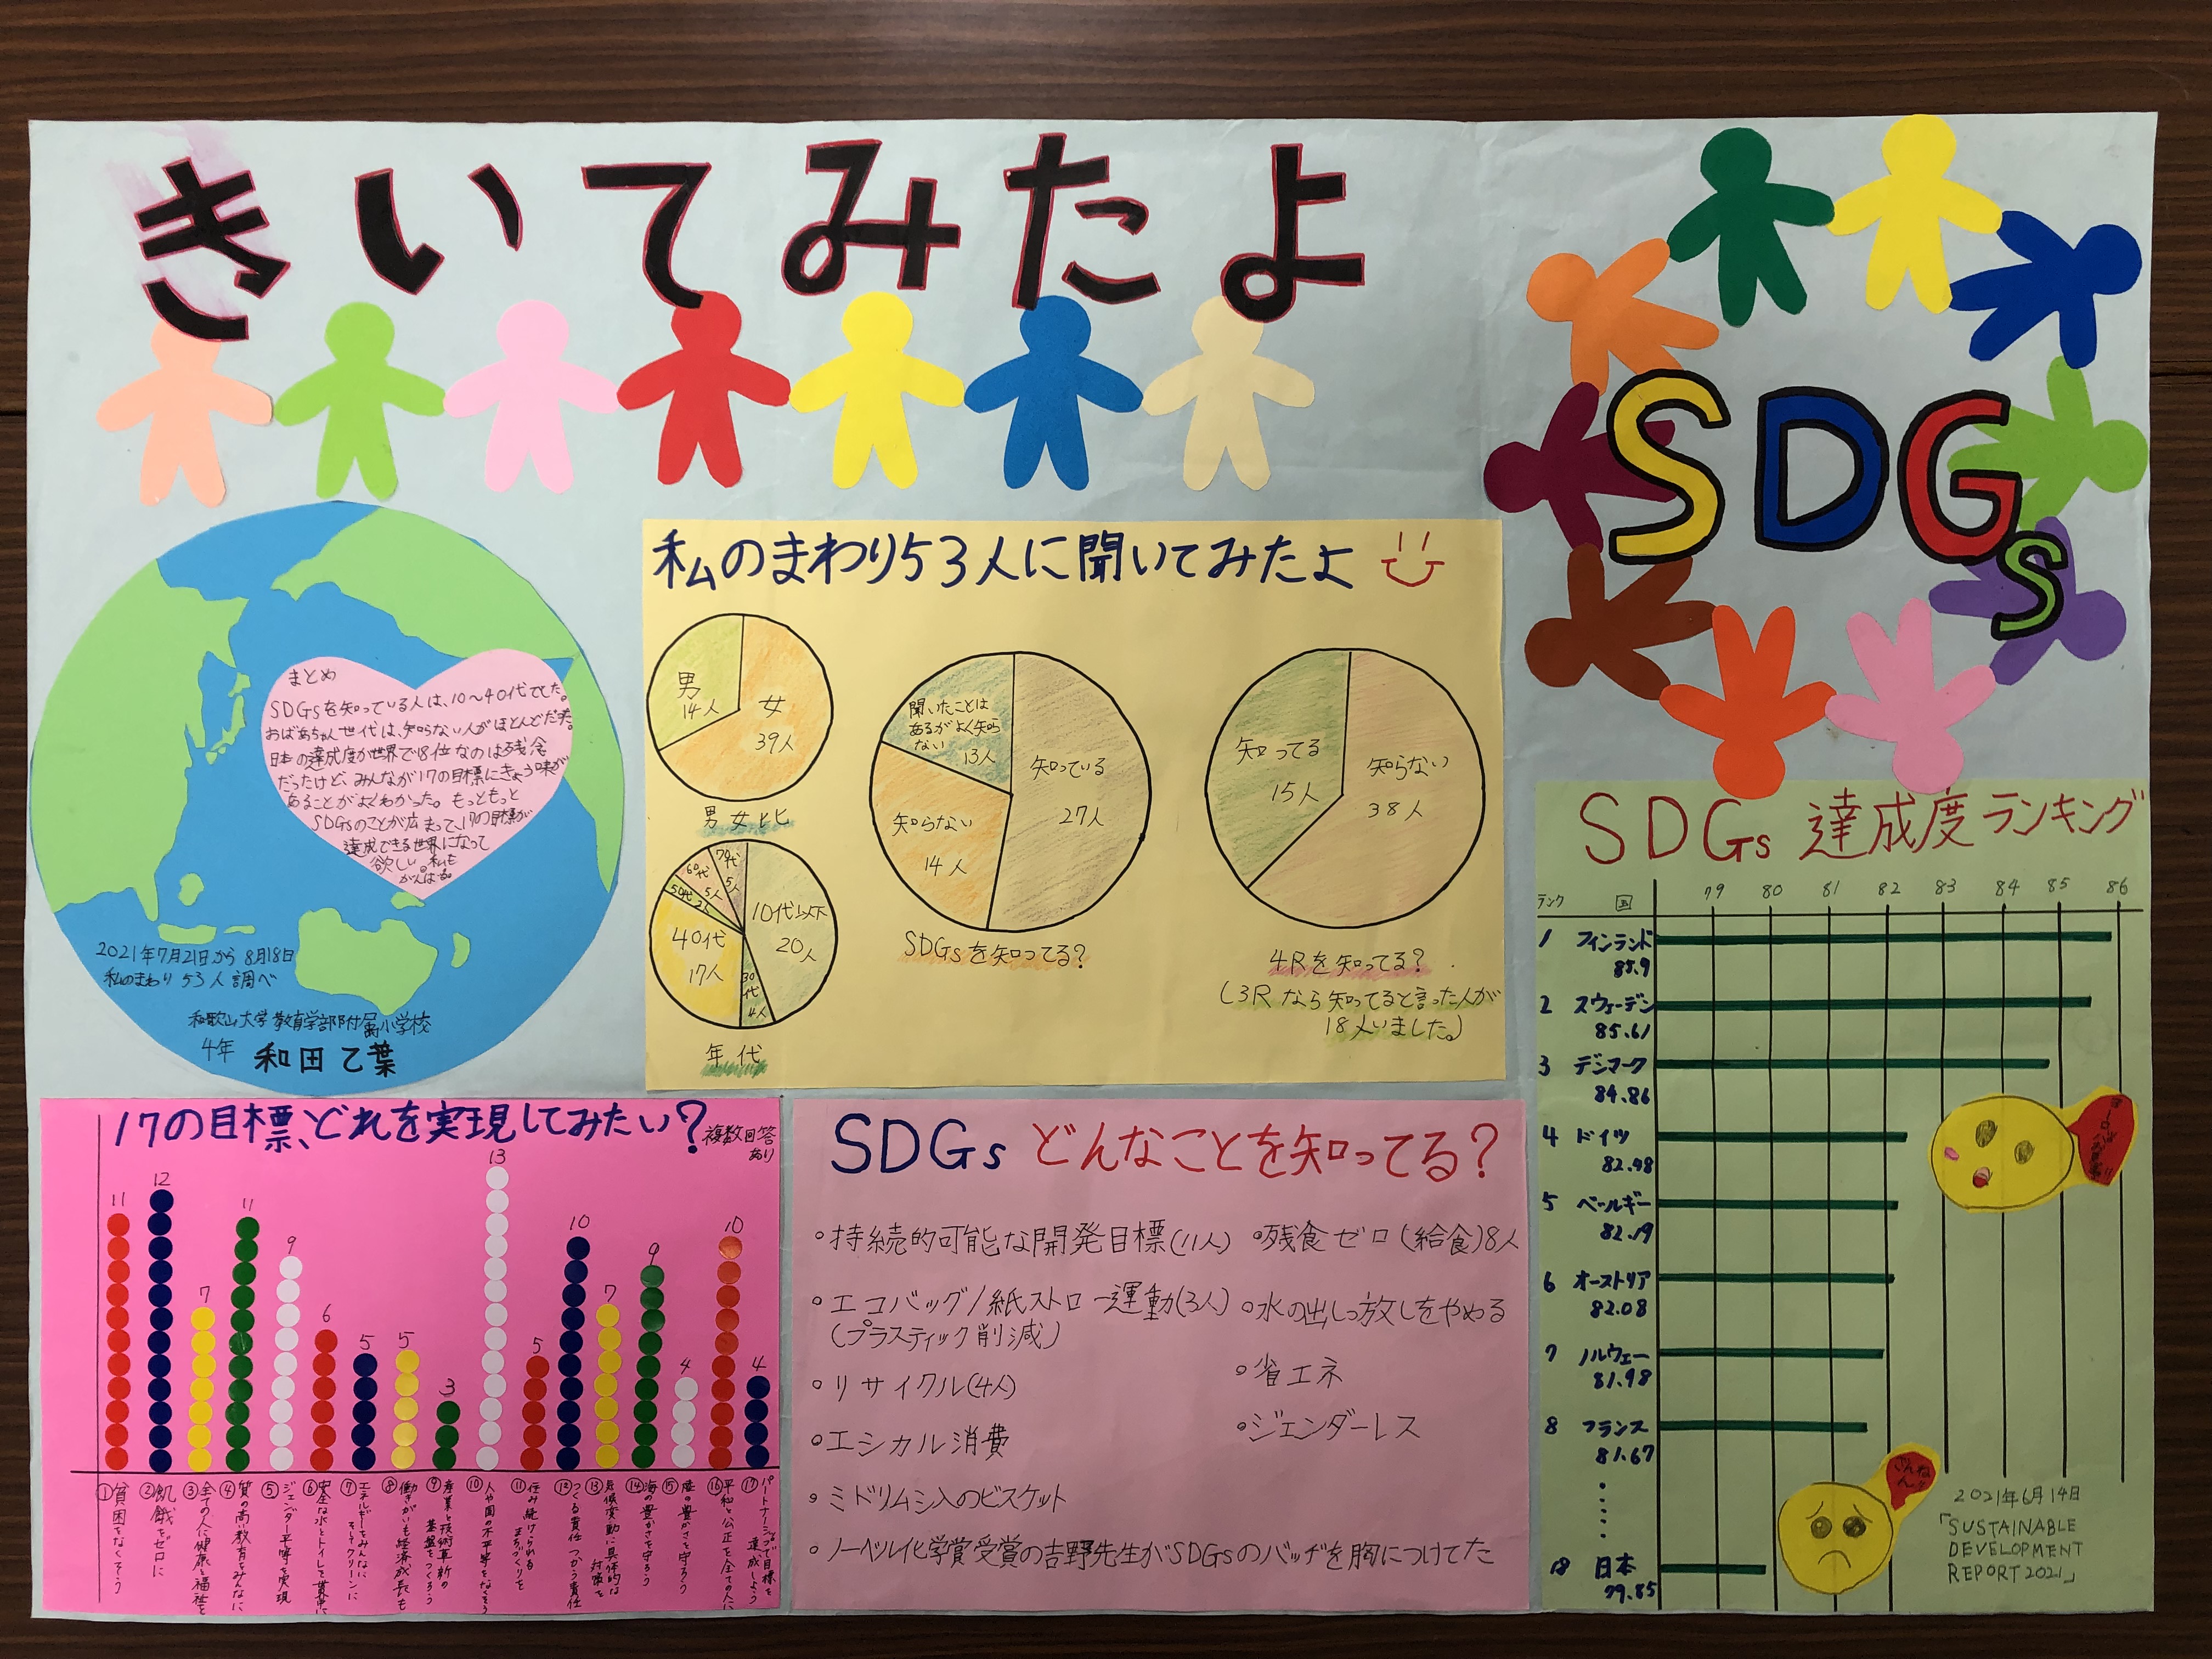 きいてみたよ
SDGs
まとめ
SDGsを知っている人は、10〜40代でした。
おばあちゃん世代は、知らない人がほとんどだった。
日本の達成度が世界で18位なのは残念
だったけど、みんなが17の目標にきょう味が
あることがよくわかった。もっともっと
SDGsのことが広まって、17の目標が
達成できる世界になって
欲しい。私も
がんばる。
2021年7月21日から8月18日
私のまわり53人調べ
和歌山大学教育学部附属小学校
4年 和田乙葉
私のまわり53人に聞いてみたよ
男
14人
女
39人
男女比
10代以下
20人
30代
4人
40代
17人
50代
2人
60代
5人
70代
5人
年代
聞いたことは
あるがよく知ら
ない
13人
知っている
27人
知らない
14人
SDGsを知ってる?
知ってる
15人
知らない
38人
4Rを知ってる?
(3Rなら知ってると言った人が
18人いました。)
17の目標、どれを実現してみたい?
複数回答
あり
11
12
7
11
9
6
5
5
3
13
5
10
7
9
4
10
4
①貧困をなくそう
②飢餓をゼロに
③全ての人に健康と福祉を
④質の高い教育をみんなに
⑤ジェンダー平等を実現
⑥安全な水とトイレを世界に
⑦エネルギーをみんなに
そしてクリーンに
⑧働きがいも経済成長も
⑨産業と技術革新の
基盤をつくろう
⑩人や国の不平等をなくそう
⑪住み続けられる
まちづくりを
⑫つくる責任つかう責任
⑬気候変動に具体的な
対策を
⑭海の豊かさを守ろう
⑮陸の豊かさも守ろう
⑯平和と公正を全ての人に
⑰パートナーシップで目標を
達成しよう
SDGs どんなことを知ってる?
○持続的可能な開発目標(11人)
○エコバッグ/紙ストロー運動(3人)
(プラスティック削減)
○リサイクル(4人)
○エシカル消費
○ミドリムシ入のビスケット
○ノーベル化学賞受賞の吉野先生がSDGsのバッヂを胸につけてた
○残食ゼロ(給食)8人
○水の出しっ放しをやめる
○省エネ
○ジェンダーレス
SDGs 達成度ランキング
ランク 国 79 80 81 82 83 84 85 86
1 フィンランド
85.9
2 スウェーデン
85.61
3 デンマーク
84.86
4 ドイツ
82.48
5 ベールギー
82.19
6 オーストリア
82.08
7 ノルウェー
81.98
8 フランス
81.67
18 日本
79.85
ざんねん!!
2021年6月14日
「SUSTAINABLE
DEVELOPMENT
REPORT 2021」